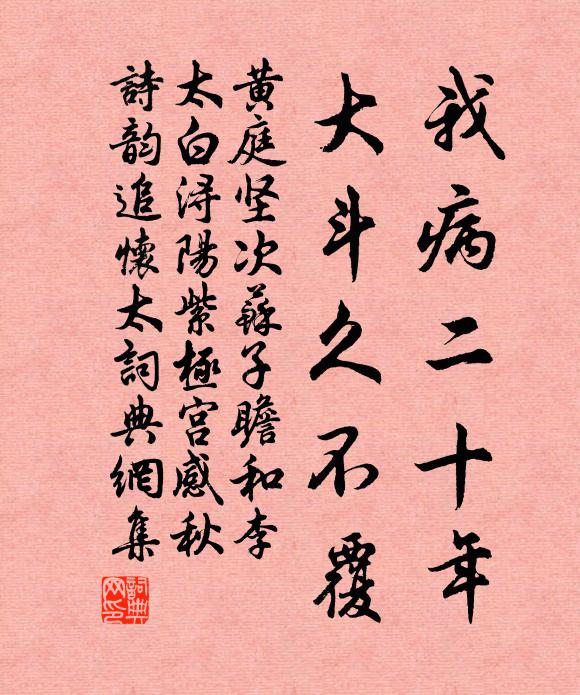 我病二十年
大斗久不覆
黄庭坚次蘇子瞻和李
太白浔陽紫極宫感秋
詩韵追懷太詞典網集
詞典
网印